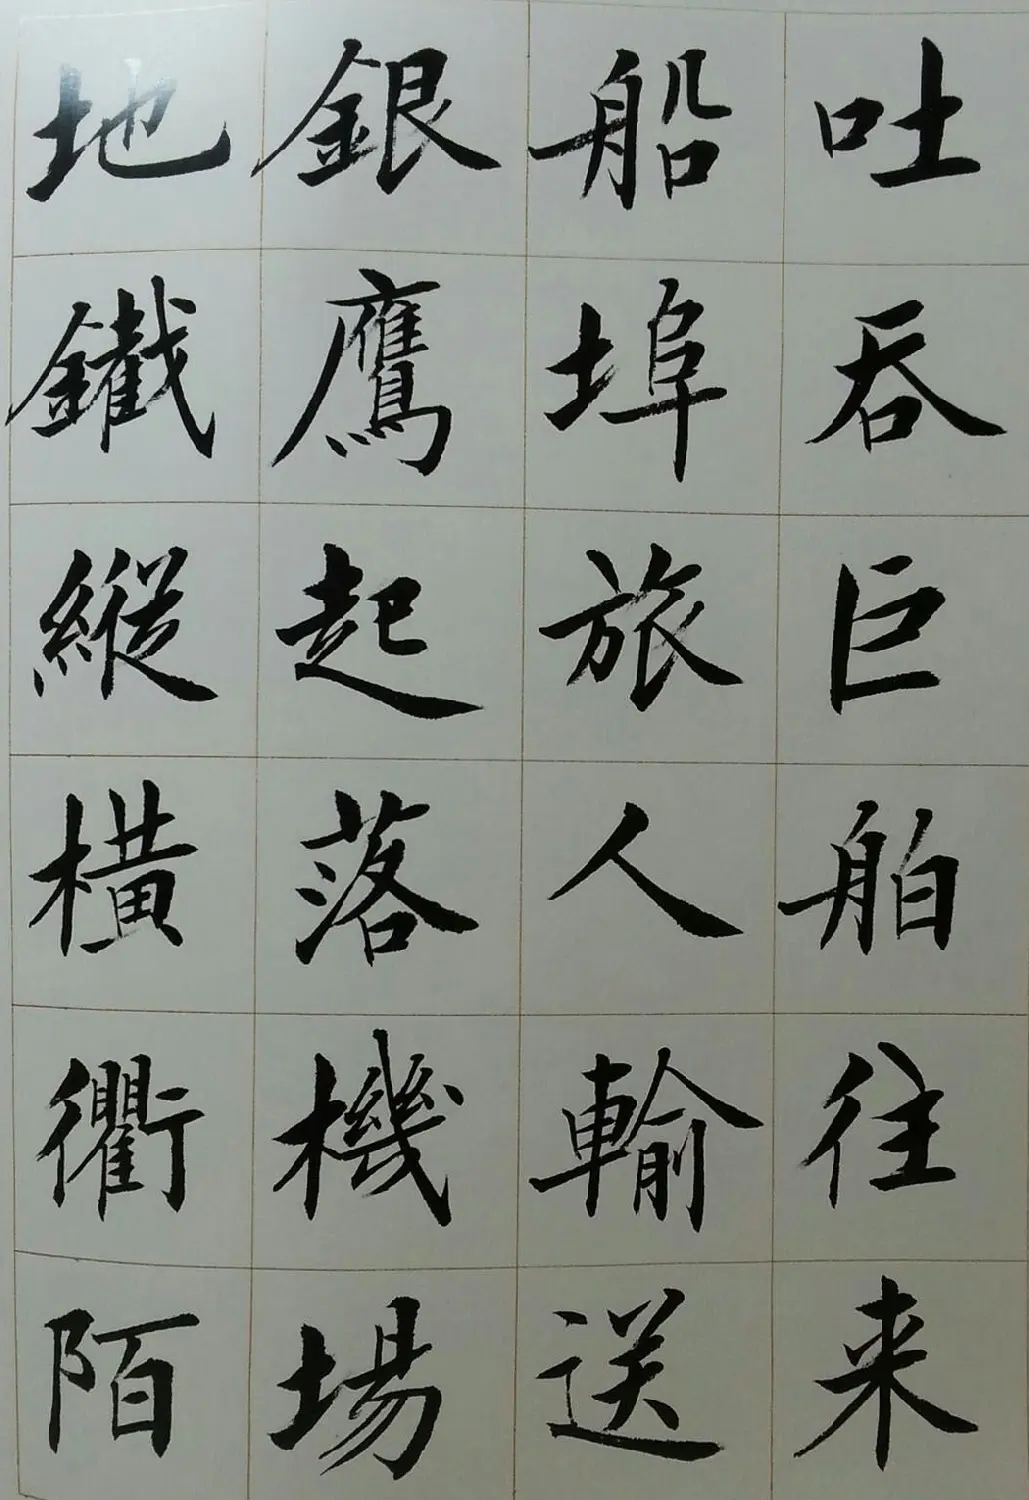 吐吞巨舶往来
船埠旅人輸送
銀鷹起落機場
地鐵縱橫衢陌